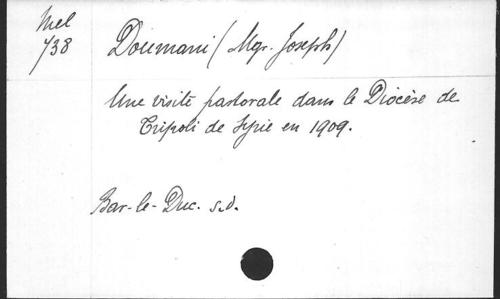 Mel
738
Doumani (Mgr. Joseph)
Une visite pastorale dans le Diocèse de
Tripoli de Syrie en 1909.
Bar-le-Duc. s.d.